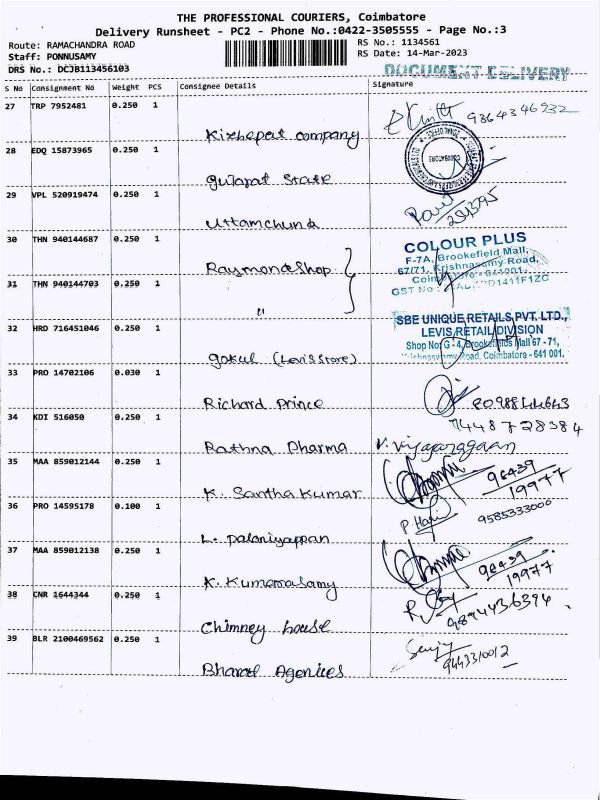 THE PROFESSIONAL COURIERS, Coimbatore
Delivery Runsheet - PC2 - Phone No.:0422-3505555 - Page No.:3
Route: RAMACHANDRA ROAD RS No.: 1134561
Staff: PONNUSAMY RS Date: 14-Mar-2023
DRS No.: DCJB113456103 DOCUMENT DELIVERY
S No Consignment No Weight PCS Consignee Details Signature
27 TRP 7952481 0.250 1
9864346932
Kizhepat company
28 EDQ 15873965 0.250 1
COIMBATORE
Gujarat State
29 VPL 520919474 0.250 1
Uttamchund
30 THN 940144687 0.250 1
COLOUR PLUS
F-7A, Brookefield Mall,
67/71, Krishnasamy Road,
Raymond shop
31 THN 940144703 0.250 1
Coimbatore - 641001.
GST No :
"
32 HRD 716451046 0.250 1
SBE UNIQUE RETAILS PVT. LTD.,
LEVIS RETAIL DIVISION
Shop No: G - 4, Brookefields Mall 67 - 71,
Krishnasamy Road, Coimbatore - 641 001.
gokul (Levis store)
33 PRO 14702106 0.030 1
8098844643
Richard Prince
34 KDI 516050 0.250 1
7448728384
Rathna Dharma V. Vijayaragaan
35 MAA 859012144 0.250 1
96439
19977
K. Santha Kumar
36 PRO 14595178 0.100 1
P. Hari 9585333000
L. Palaniyappan
37 MAA 859012138 0.250 1
96439
19977
K. Kumarasamy
38 CNR 1644344 0.250 1
9894436394
Chimney house
39 BLR 2100469562 0.250 1
9443310012
Bharat Agencies